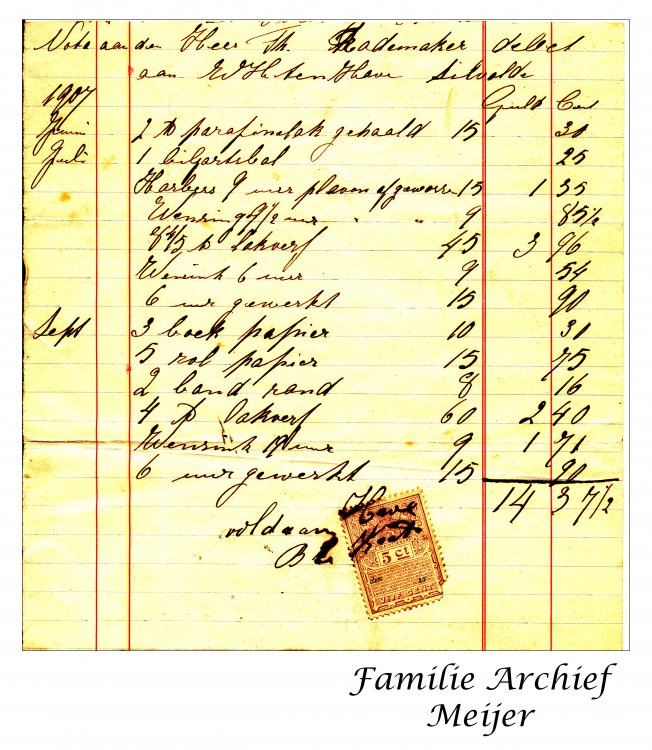 Nota aan den Heer Th. Rademaker debet
aan W H ten Have Silvolde
1907 Guld Cent
Juni 2 ℔ parafinelak gehaald 15 30
Juli 1 biljartsbal 25
Harbers 9 uur plavon afgewerkt 15 1 35
Wensing 9 1/2 uur " " 9 85 1/2
8 4/5 ℔ lakverf 45 3 96
Wensink 6 uur 9 54
6 uur gewerkt 15 90
Sept 3 boek papier 10 30
5 rol papier 15 75
2 band rand 8 16
4 ℔ lakverf 60 2 40
Wensink 19 uur 9 1 71
6 uur gewerkt 15 90
14 37 1/2
voldaan
Have
5 ct
VIJF CENT
Familie Archief
Meijer